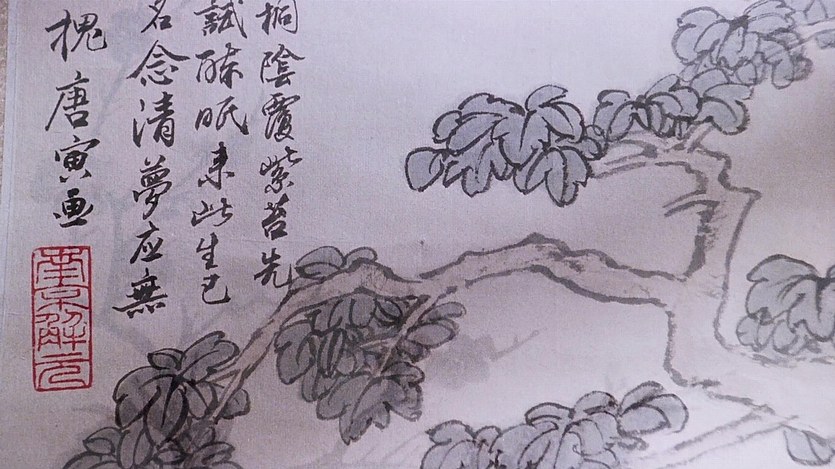 桐陰覆紫苔先
試醉眠來此生已
名念清夢應無
槐唐寅画
南京解元